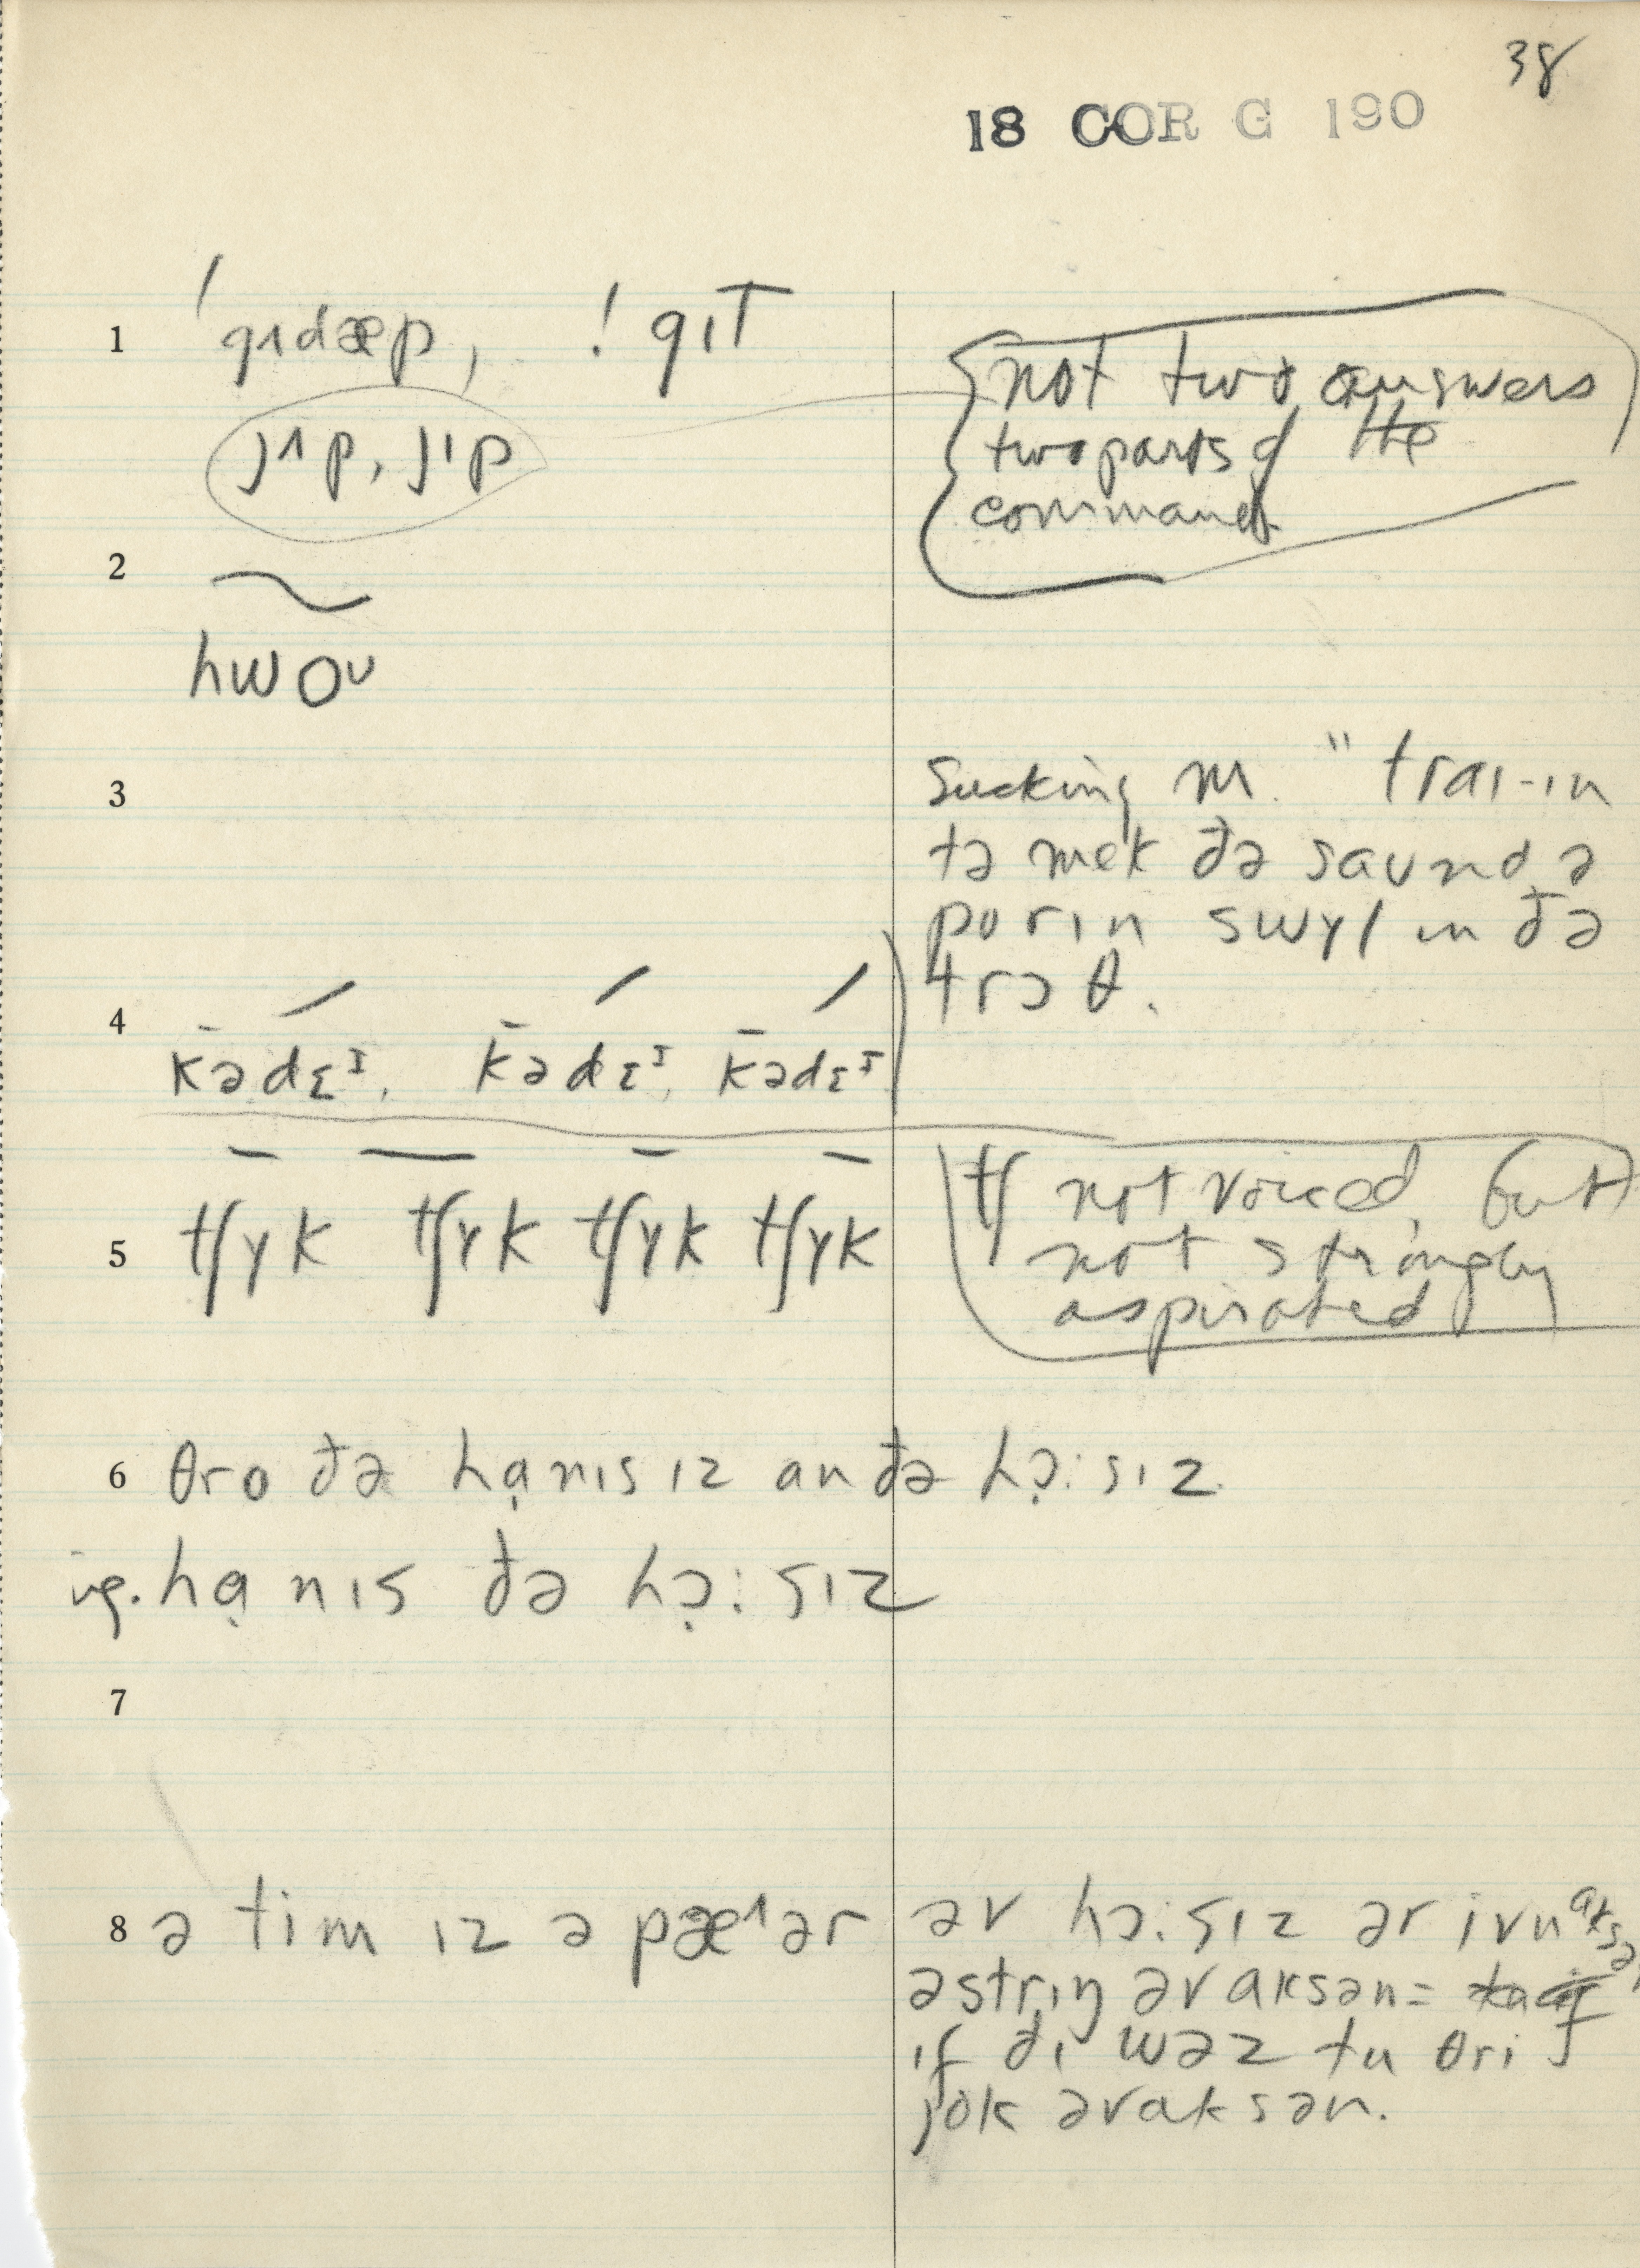 38
18 COR G 190
1 ˈgɪdæp, ! gɪT
not two answers
two parts of the
command
jɪp, jɪp
2
hwoᴜ
3
Sucking m. " traɪ-ɪn
tə mek đə saᴜnd ə
po rɪn swɤl ɪn đə
trɔ θ.
4 kədɛᴵ, kədɛᴵ, kədɛᴵ
5 tʃɤk tʃɤk tʃɤk tʃɤk
tʃ not voiced, but
not strongly
aspirated
6 θro đə hạnɪs ɪz an đə hɔ̣:sɪz
hạnɪs đə hɔ̣:sɪz
7
8 ə tim ɪz ə pæᶦər əv hɔ:sɪz ər ivn aksən
ə strɪŋ əv aksən =
ɪf đɪ wəz tu θri
jok əv aksən.